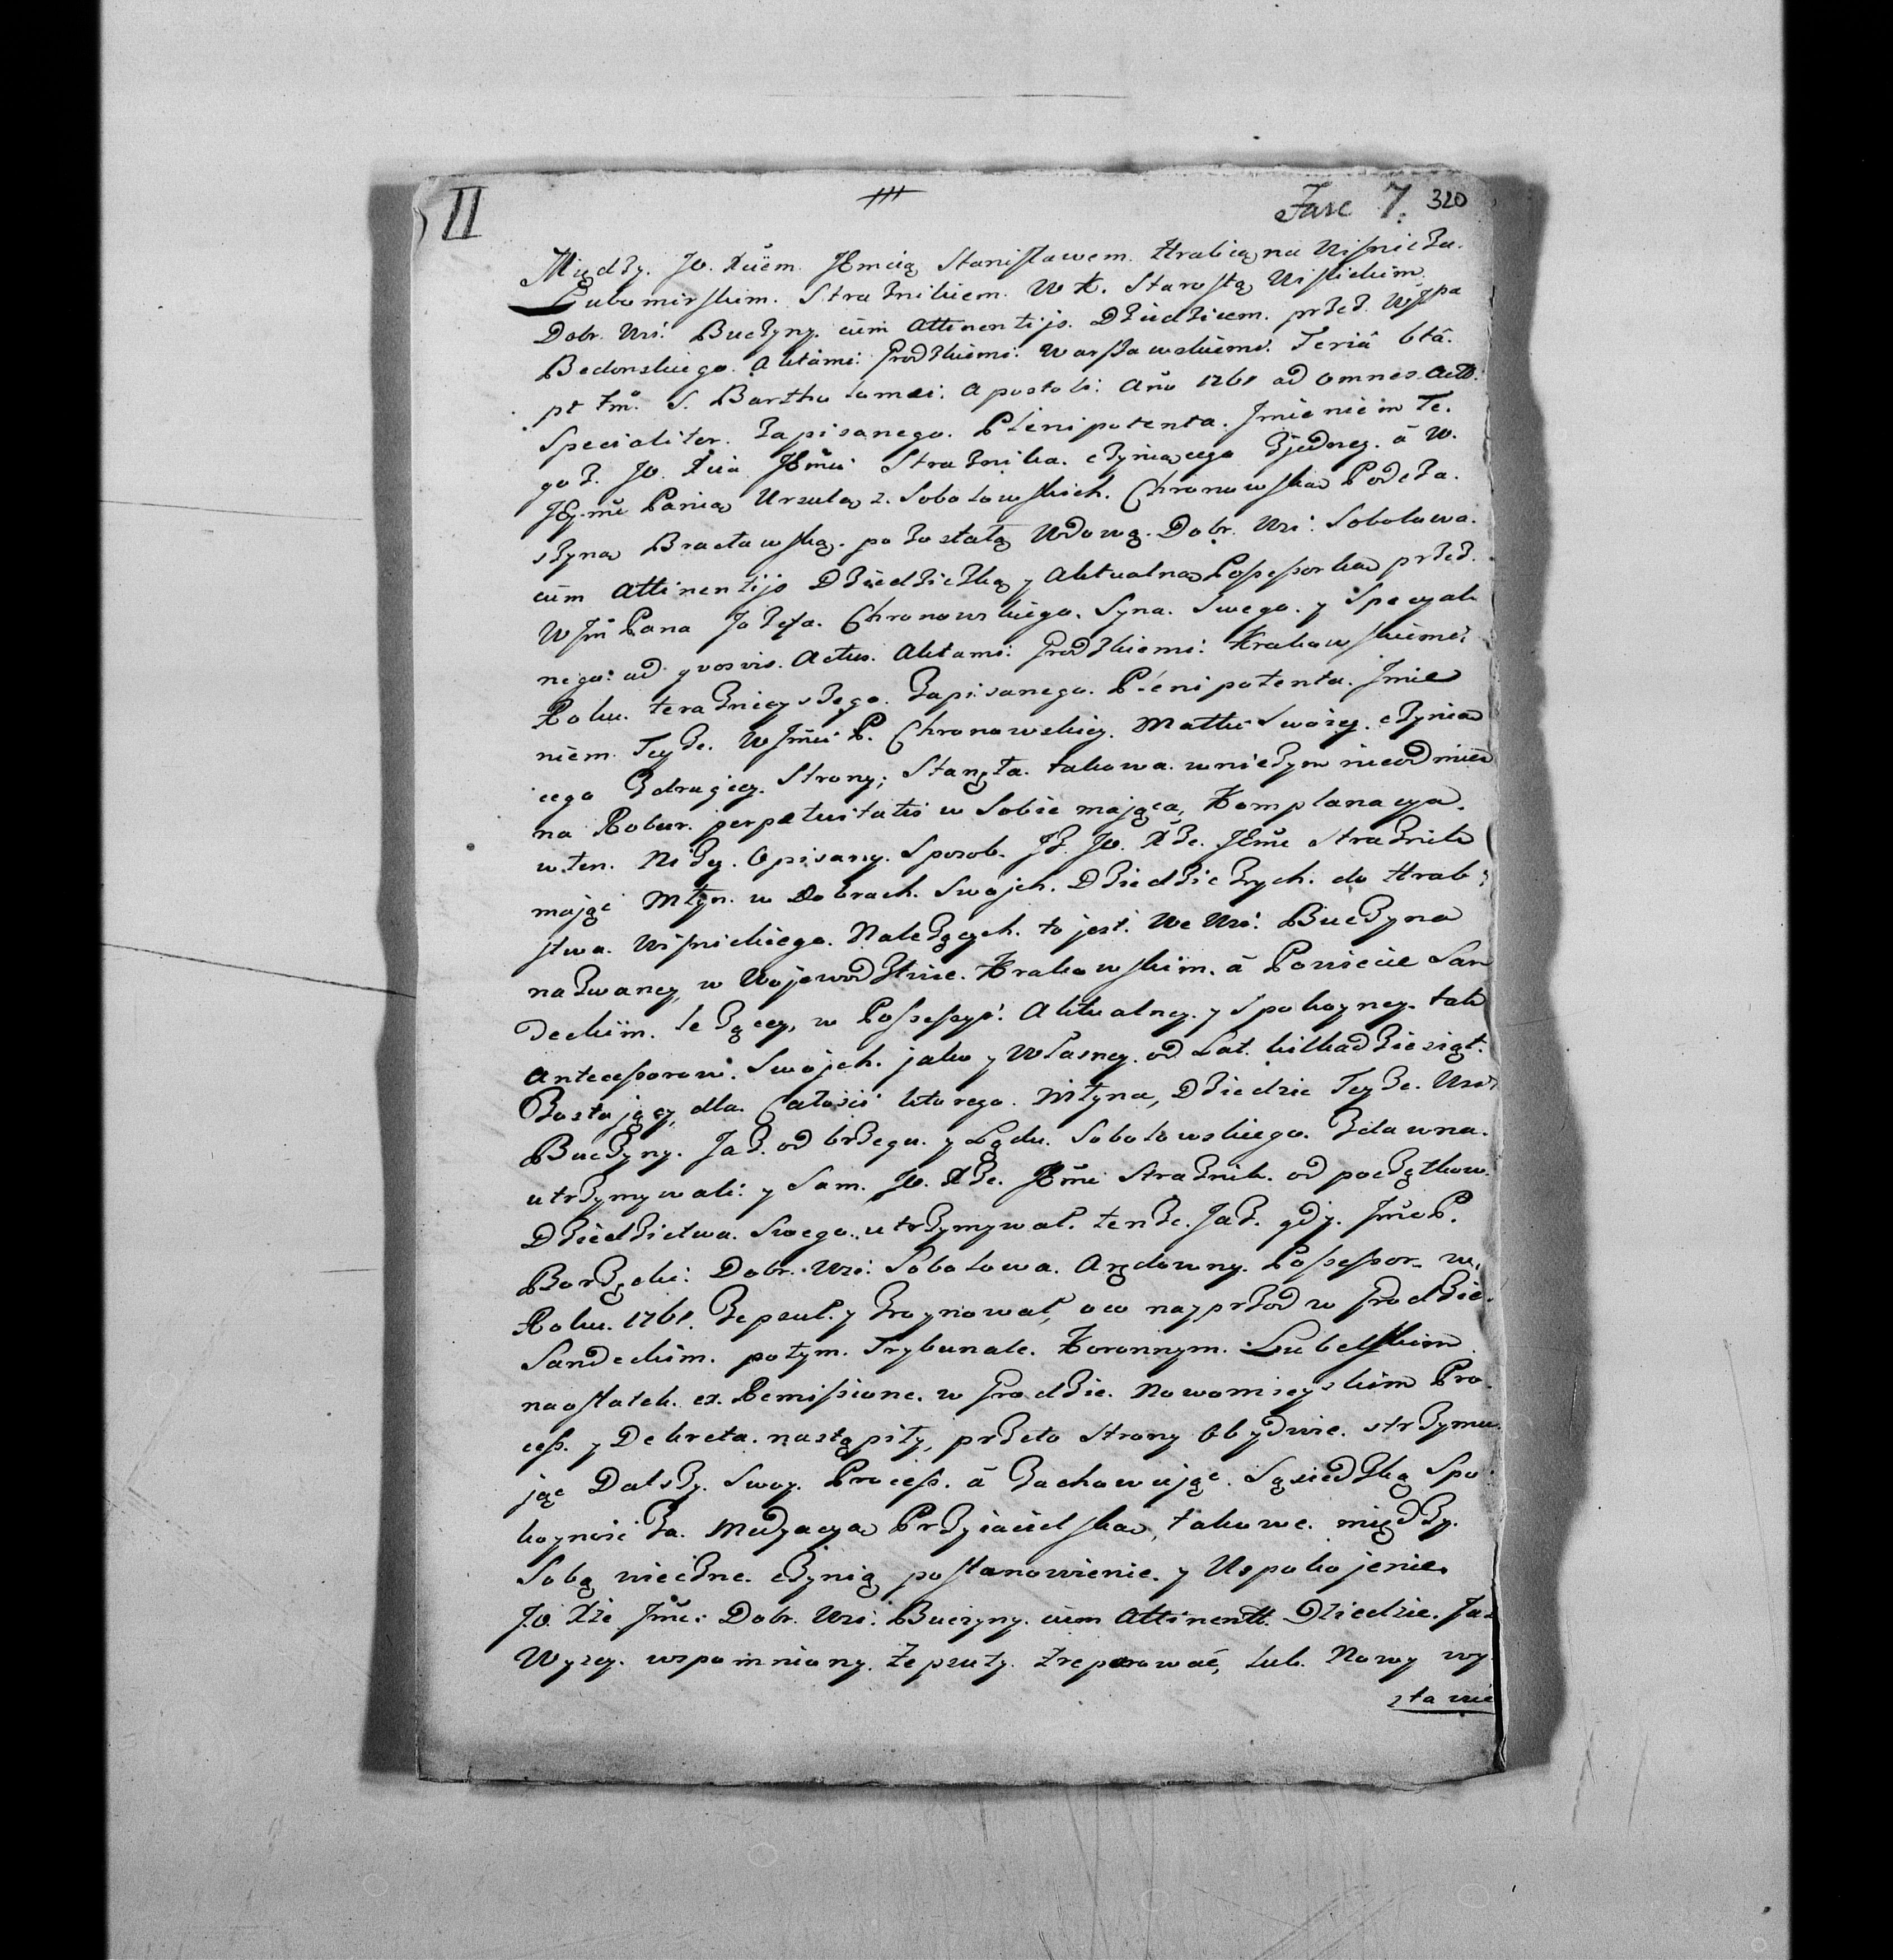 II
Fasc 7. 320
Między. JO. Xiem. JEmcią Stanisławem. Hrabią na Wiśnicza.
Lubomirskim. Strażnikiem. W K. Starostą Wiślickim.
Dobr. Wsi. Buczyny. cum Attinentijs. Dziedzicem. przez. WJPa
Bedonskiego. Aktami: Grodzkiemi: Warszawskiemi. Feriâ 6tâ.
pt Fm. S. Bartholomei: Apostoli: Año 1761 ad omnes. Actt:
Specialiter. Zapisanego. Plenipotenta. Jmieniem Te.
goż. JO. Xcia JEmci Strażnika. czyniącego zjedney. á W.
JEymć Panią Urszulą z. Sobolowskich. Chronowską Podcza.
szyną Bracławską. pozostałą Wdową. Dobr. Wsi: Sobolowa.
cum Attinentijs Dziedziczką y Aktualną Possessorką przez.
WJm Pana Józefa. Chronowskiego. Syna. Swego. y Specyal
nego: ad quosvis. Actus. Aktami: Grodzkiemi: Krakowskiemi.
Roku. teraźnieyszego. Zapisanego. Plenipotenta. Jmie
niem. Teyże. WJmci P. Chronowskiey. Matki Swoiey. czynią
cego Zdrugiey. Strony; Stanęła. takowa. wniczym nieodmien
na Robur. perpetuitatis w Sobie mająca, Komplanacya.
w.ten. Niżey. Opisany. Sposob. Jż. JO. Xże. JEmć Strażnik
mając Młyn. w Dobrach. Swojch. Dziedzicznych. do Hrab
stwa. Wiśnickiego. Należących. to jest. We Wsi: Buczyna
nazwaney, w Wojewodztwie. Krakowskim. á Powiecie San
deckim. leżącey, w Possessyi. Aktualney. y Spokoyney. tak
Antecessorow. Swojch. jako y Własney. od Lat. kilkadziesiąt.
Zostający, dla. Całości ktorego. Młyna, Dziedzice Teyże. Wsi
Buczyny. Jaz. od brzegu. y Lądu. Sobolowskiego. Zdawna.
utrzymywali: y Sam. JO. Xże. JEmć Strażnik. od początkow.
Dziedzictwa. Swego. utrzymywał. tenże. Jaz. gdy. Jmć P.
Borzęcki: Dobr. Wsi: Sobolowa. Arędowny. Possessor. w.
Roku. 1761. Zepsuł. y Zroynował, oco nayprzod w Grodzie.
Sandeckim. potym. Trybunale. Koronnym. Lubelskim
naostatek. ex. Remissione. w Grodzie. Nowomieyskim Pro
cess. y Dekreta. nastąpiły, przeto Strony Obydwie. strzymu
jąc Dalszy. Swoy. Process. á Zachowując. Sąsiedzką Spo
koyność Za. Medyacyą Przyiacielską, takowe. między.
Sobą wieczne. czynią postanowienie. y Uspokojenie.
JO. Xże Jmć: Dobr. Wsi: Buczyny. cum Attinentt. Dziedzic. Jaz
Wyżey. wspomniony. Zepsuty. Zreperować, lub. Nowy wy
stawić